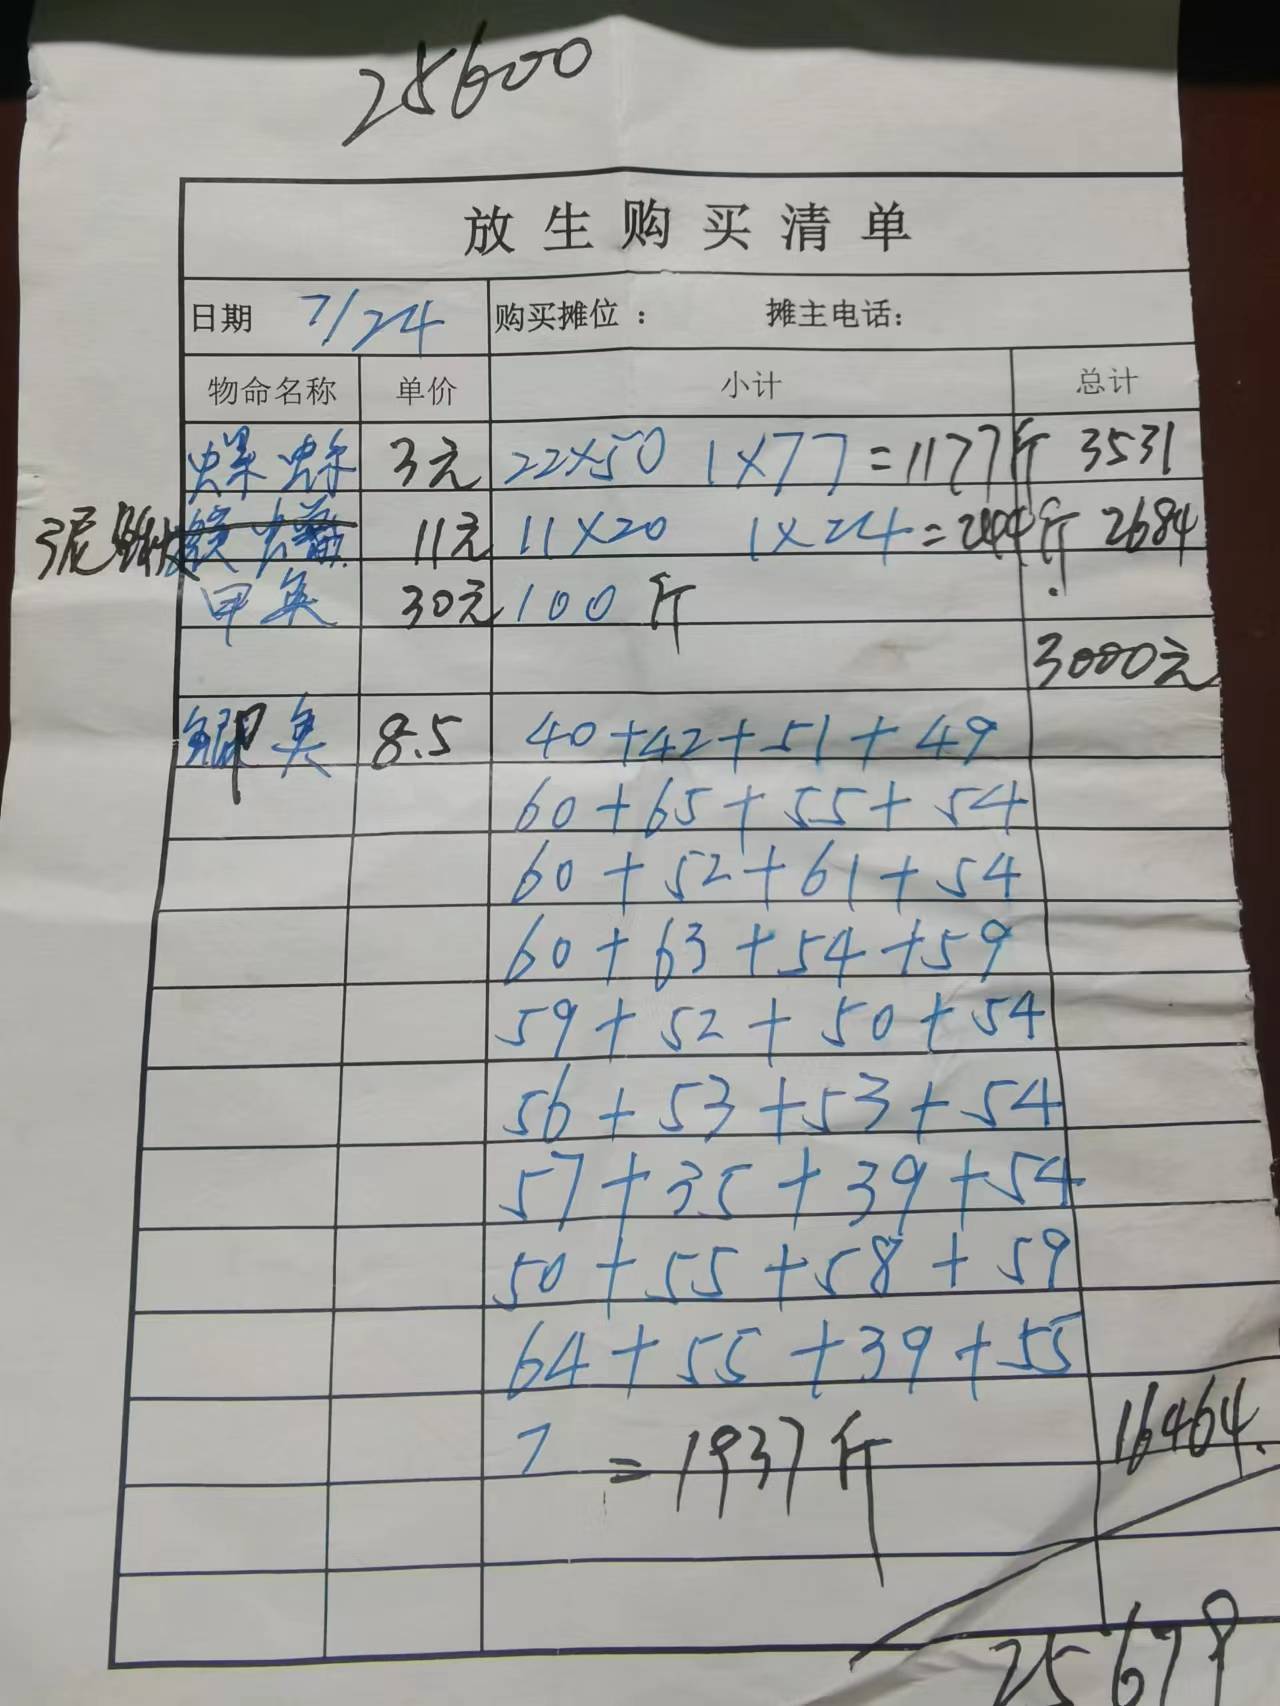 25600
放生购买清单
日期 7/24 购买摊位： 摊主电话：
物命名称 单价 小计 总计
3元 22×50 1×77=1177斤 3531
泥鳅 11元 11×20 1×24=244斤 2684
甲鱼 30元 100斤
3000元
鲫鱼 8.5 40+42+51+49
60+65+55+54
60+52+61+54
60+63+54+59
59+52+50+54
56+53+53+54
57+35+39+54
50+55+58+59
64+55+39+55
7 =1937斤 16464.
25679